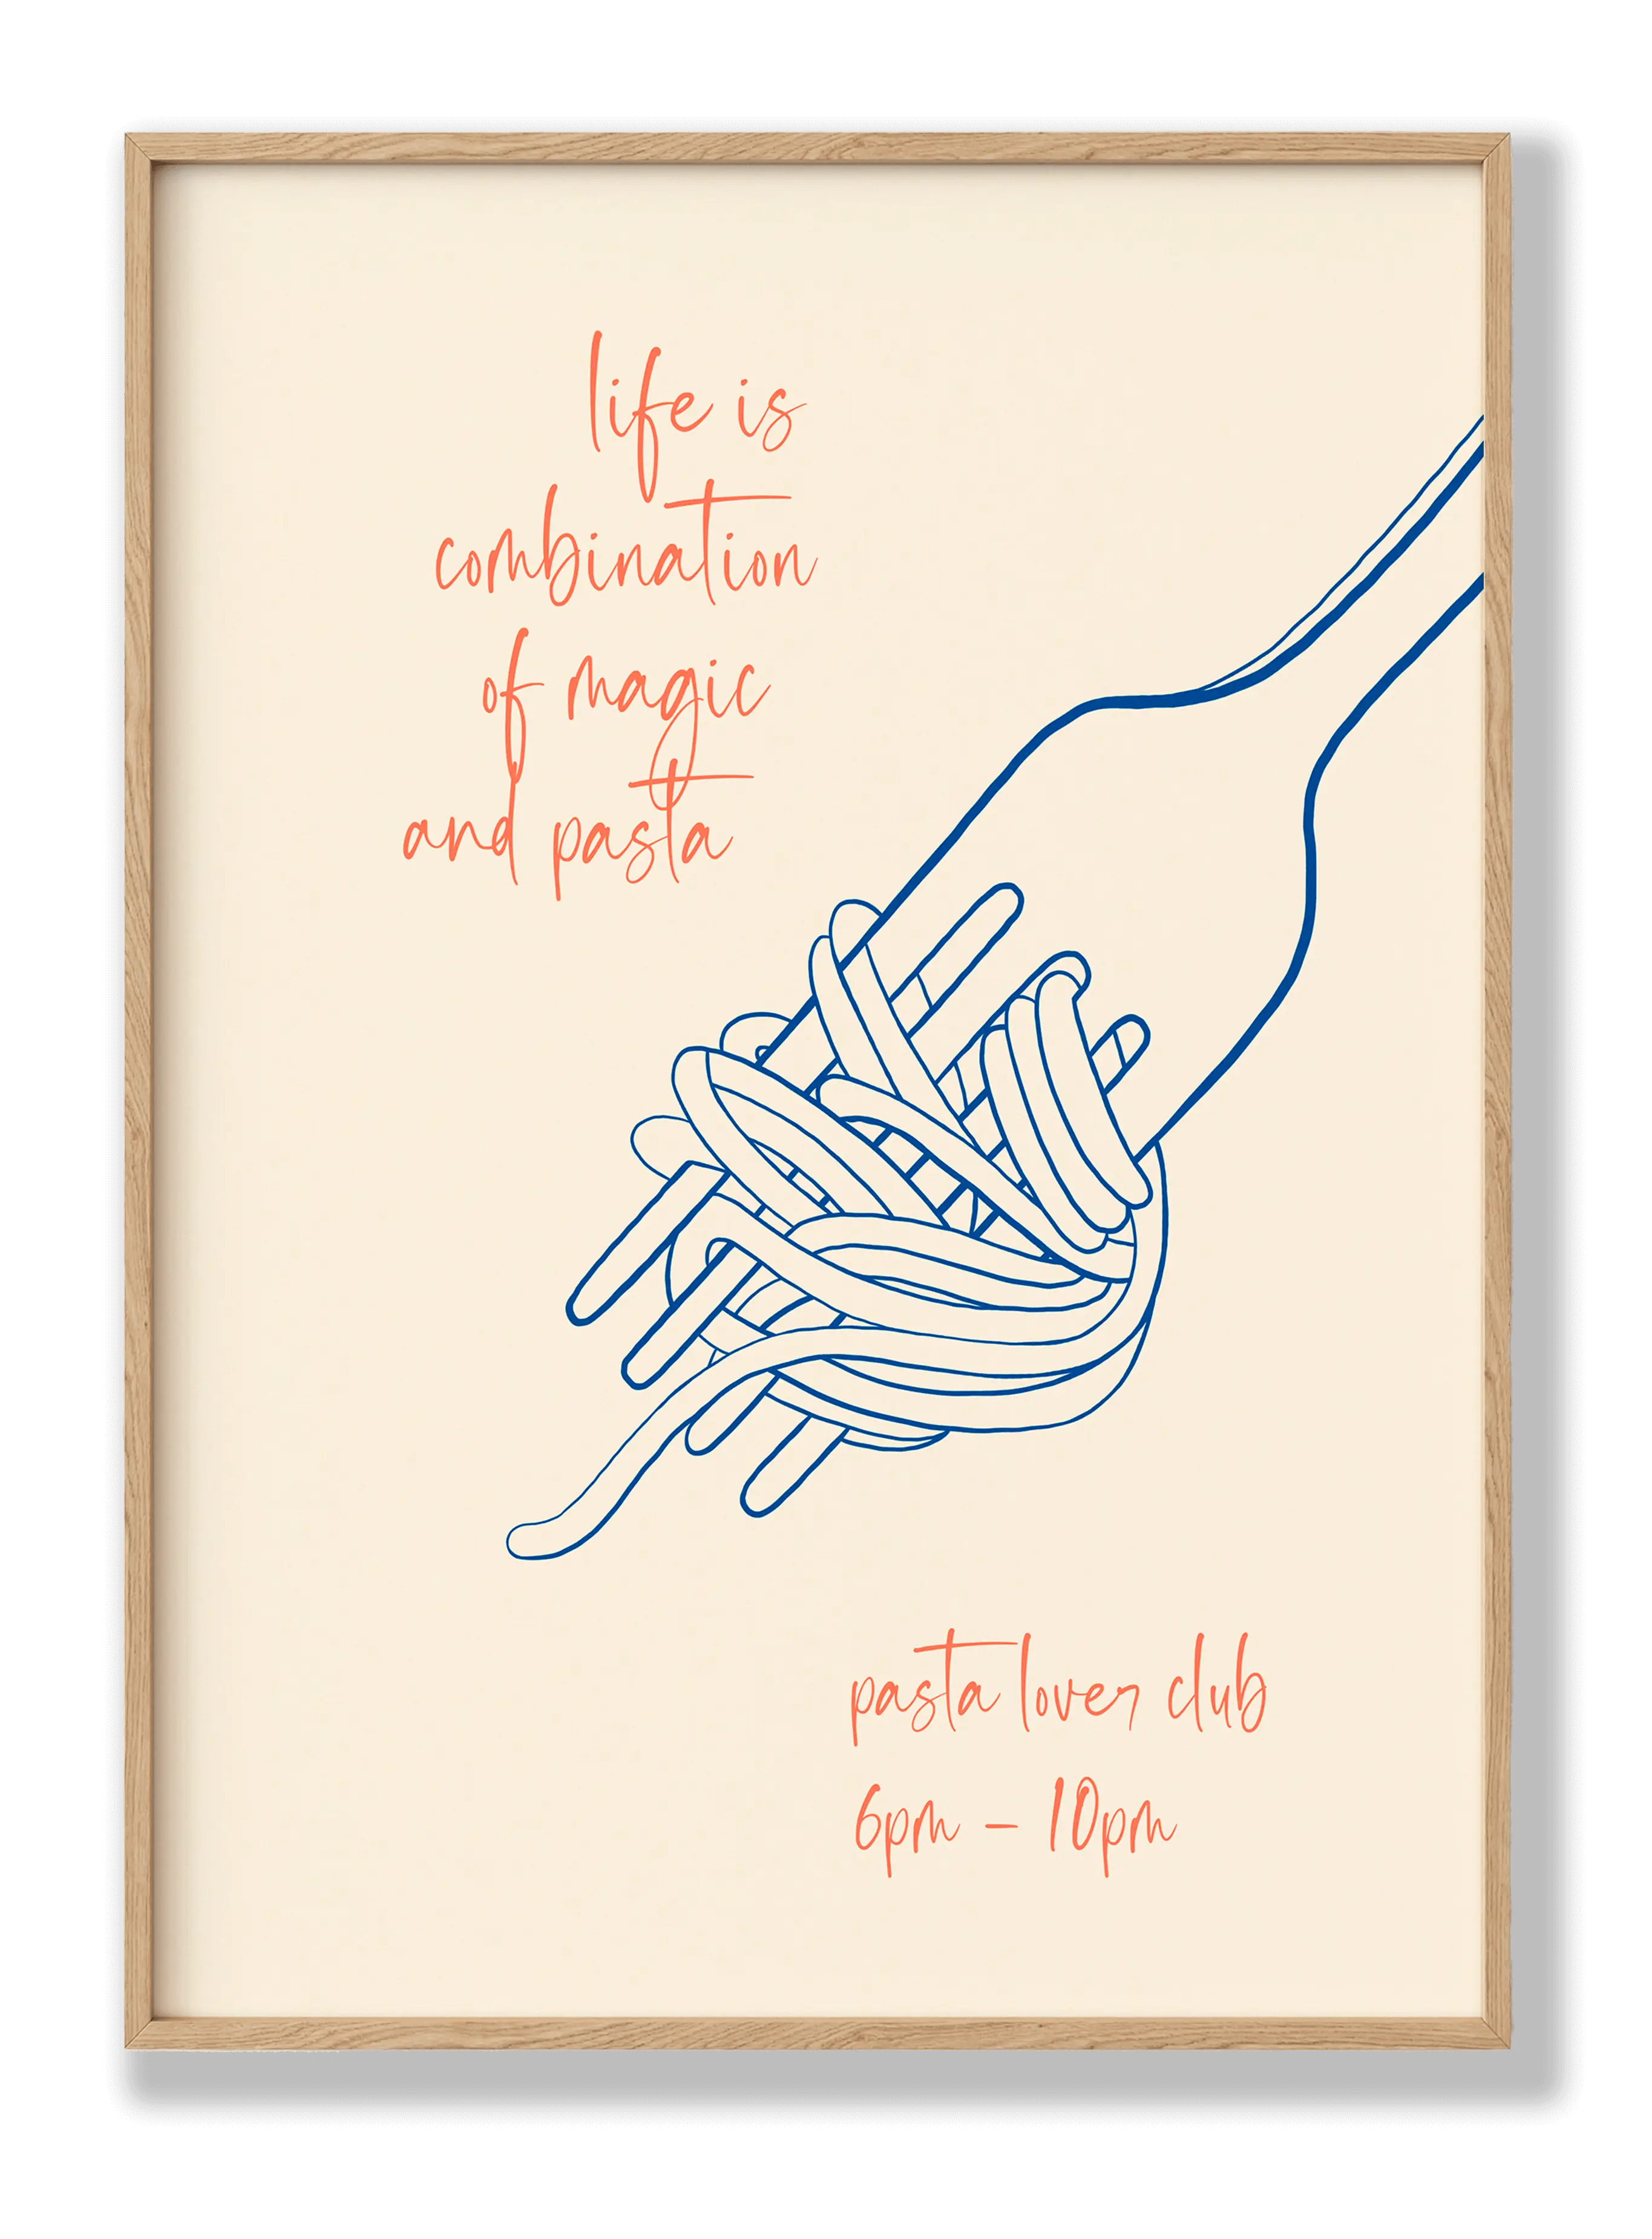 life is
combination
of magic
and pasta
pasta lover club
6pm - 10pm